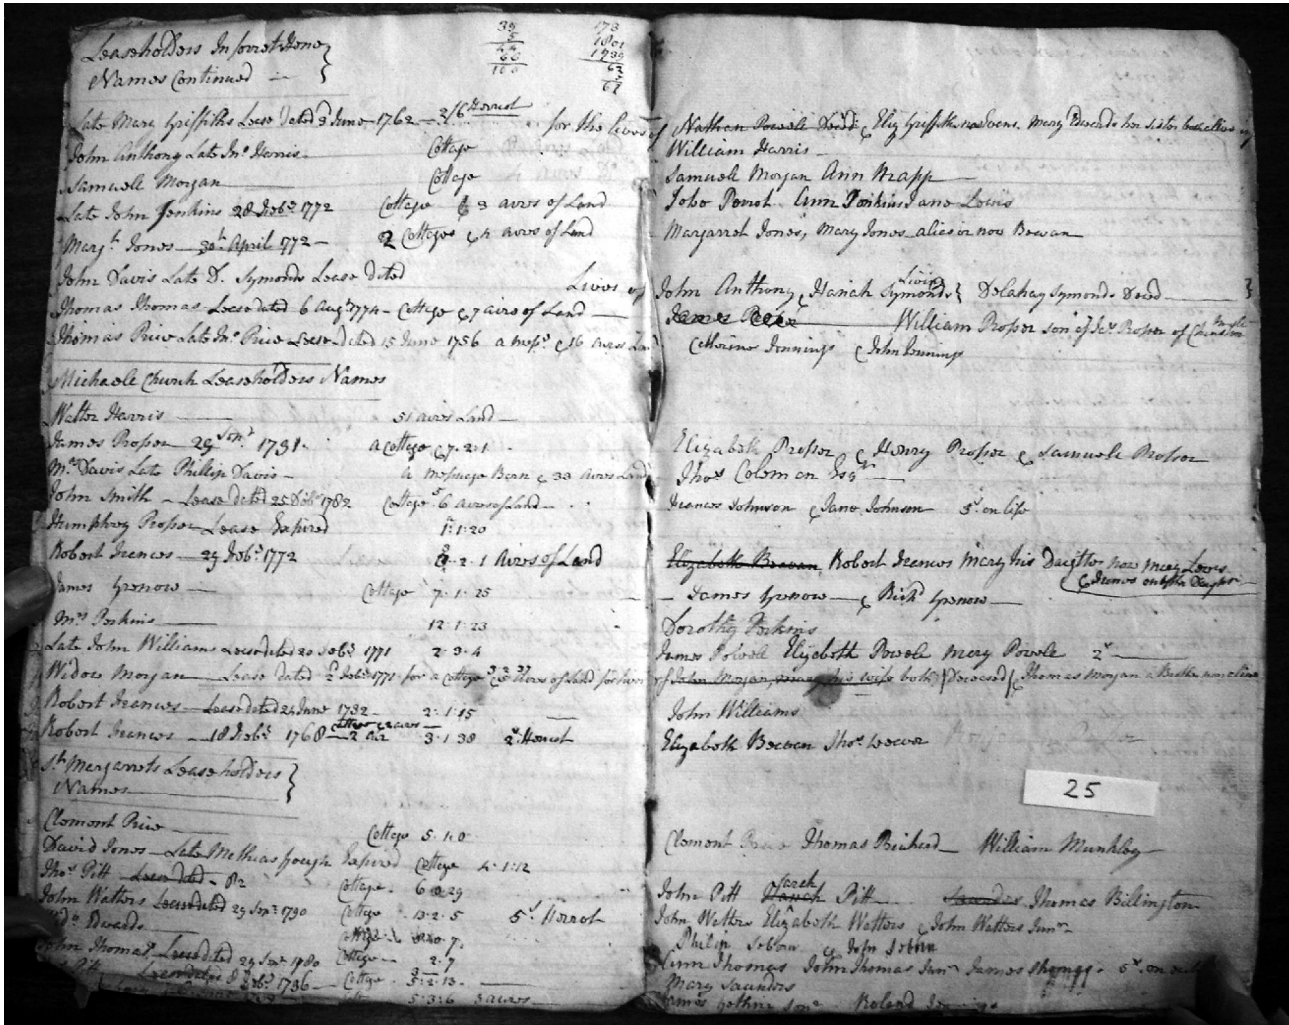 Leaseholders In forrest Hene
Names Continued
39
5
44
66
100
178
1801
1739
62
5
67
Late Mary Griffiths Lease dated 3d June 1762 2/6 Herriot for the lives of
John Anthony Late Jno Harris Cottage
Samuell Morgan Cottage
Late John Jenkins 28 Febr 1772 Cottage & 3 acres of Land
Margt Jones 30th April 1772 2 Cottages & 4 acres of Land
John Davis Late D. Symonds Lease dated Lives of
Thomas Thomas Lease dated 6 Augt 1774 Cottage & 7 acres of Land
Thomas Price Late Jno Price Lease dated 15 June 1756 a Messe & 16 acres Land
Michaele Church Leaseholders Names
Walter Harris 51 acres Land
James Prosser 29 1791 a Cottage & 7.2.1
Mrs Davis Late Phillip Davis a Messuage Barn & 33 acres Land
John Smith Lease dated 25 Decr 1782 Cottage & 6 acres of Land
Humphrey Prosser Lease Expired 1.1.20
Robert Frances 29 Febr 1772 2.1 Acres of Land
James Grenow Cottage 7.1.25
Mrs Perkins 12.1.23
Late John Williams Lease dated 20 Febr 1771 2.3.4
Widow Morgan Lease dated 2d Febr 1771 for a Cottage & 3.2.37 Acres of Land for lives
Robert Frances Lease dated 24 June 1732 2.1.15
Robert Frances 18 Febr 1768 Cottage 2 acres 3.1.38 2s Herriot
St Margarets Leaseholders
Names
Clement Price Cottage 5.1.0
David Jones Late Mathias Gough Expired Cottage 4.1.12
Thos Pitt Lease dated 82 Cottage 6 29
John Watters Lease dated 29 1790 Cottage 13.2.5 5s Herriot
Edwards 7
John Thomas Lease dated 29 1780 Cottage 2.7
Pitt Lease dated 8 Febr 1736 Cottage 5.2.13
5.3.6 3 acres
Nathan Powell Decd Eliz Griffiths now Evans. Mary Edwards her sister
William Harris
Samuell Morgan Ann Knapp
John Perrot Ann Perkins Jane Lewis
Margarret Jones, Mary Jones alias or now Bewan
John Anthony & Hanah Symonds Living Delahay Symonds Decd
William Prosser son of Jas Prosser of
Catherine Jennings & John Jennings
Elizabeth Prosser & Henry Prosser & Samuell Prosser
Thos Coleman Esqr
Frances Johnson & Jane Johnson 5s on life
Elizabeth Bewan, Robert Frances Mary his Daughter now Mary Lewis
James Grenow & Richd Grenow
Dorothy Perkins
James Powell Elizabeth Powell Mary Powell 2s
of John Morgan, Mary his wife both Deceased Thomas Morgan a Brother
John Williams
Elizabeth Bewan Thos Weaver
25
Clement Price Thomas Prichard William Munkley
John Pitt Sarah Pitt Thomas Billington
John Watters Elizabeth Watters & John Watters Junr
Philip Seborn & John Seborn
Ann Thomas John Thomas Junr James 5s on
Mary Saunders
James Roland Jennings